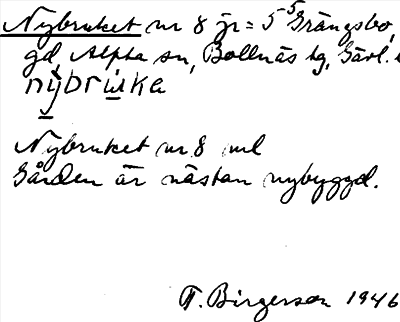 Nybruket nr 8 jr = 5⁵ Grängsbo,
gd, Alfta sn, Bollnäs tg, Gävl.
nybruka
Nybruket nr 8 ml
Gården är nästan nybyggd.
F. Birgerson 1946